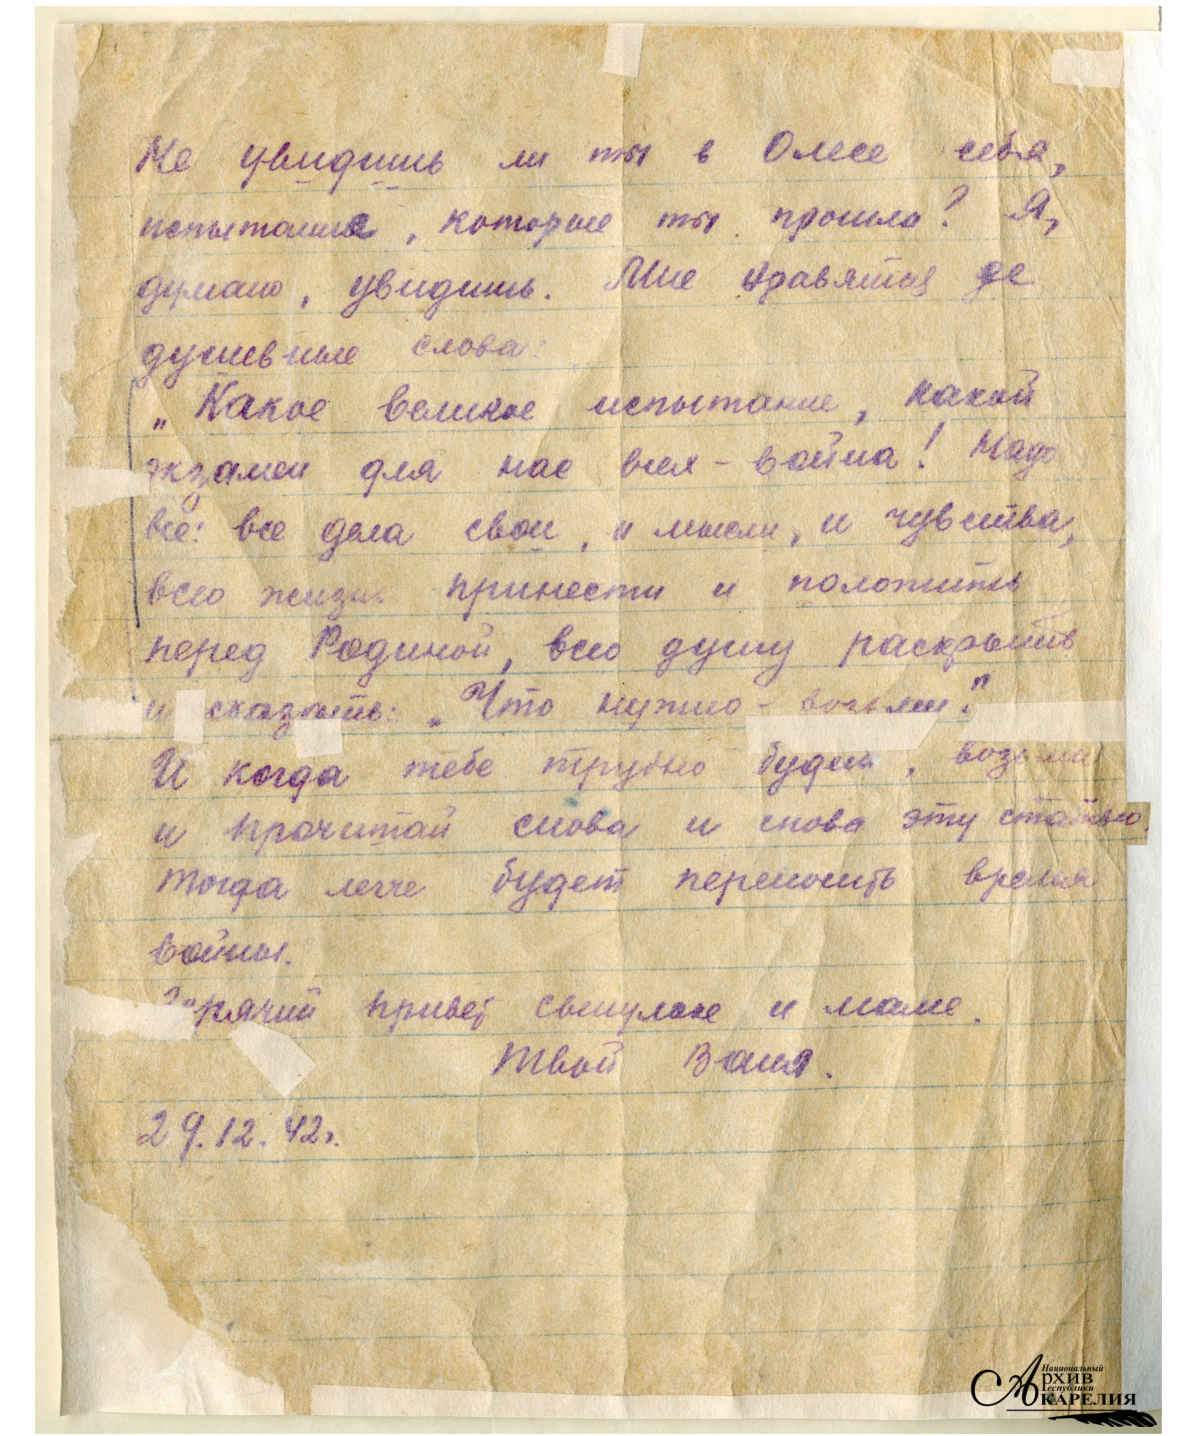 Не увидишь ли ты в Олесе себя,
испытания, которые ты прошла? Я,
думаю, увидишь. Мне нравятся ее
душевные слова:
„Какое великое испытание, какой
экзамен для нас всех – война! Надо
все: все дела свои, и мысли, и чувства,
всю жизнь принести и положить
перед Родиной, всю душу раскрыть
и сказать: „Что нужно – возьми!"
И когда тебе трудно будет, возьми
и прочитай снова и снова эту статью,
тогда легче будет переносить время
войны.
Горячий привет сынульке и маме.
Твой Ваня.
29.12.42г.
Национальный
Архив
Республики
Карелия